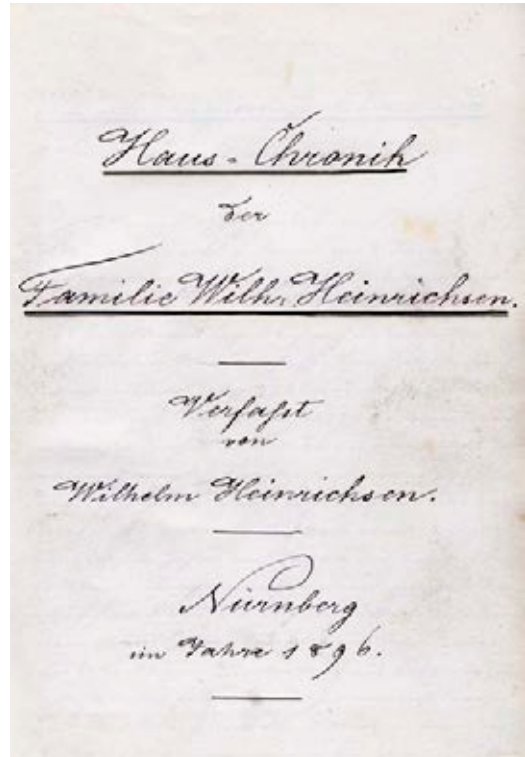 Haus-Chronik
der
Familie Wilh. Heinrichsen.
Verfaßt
von
Wilhelm Heinrichsen.
Nürnberg
im Jahre 1896.